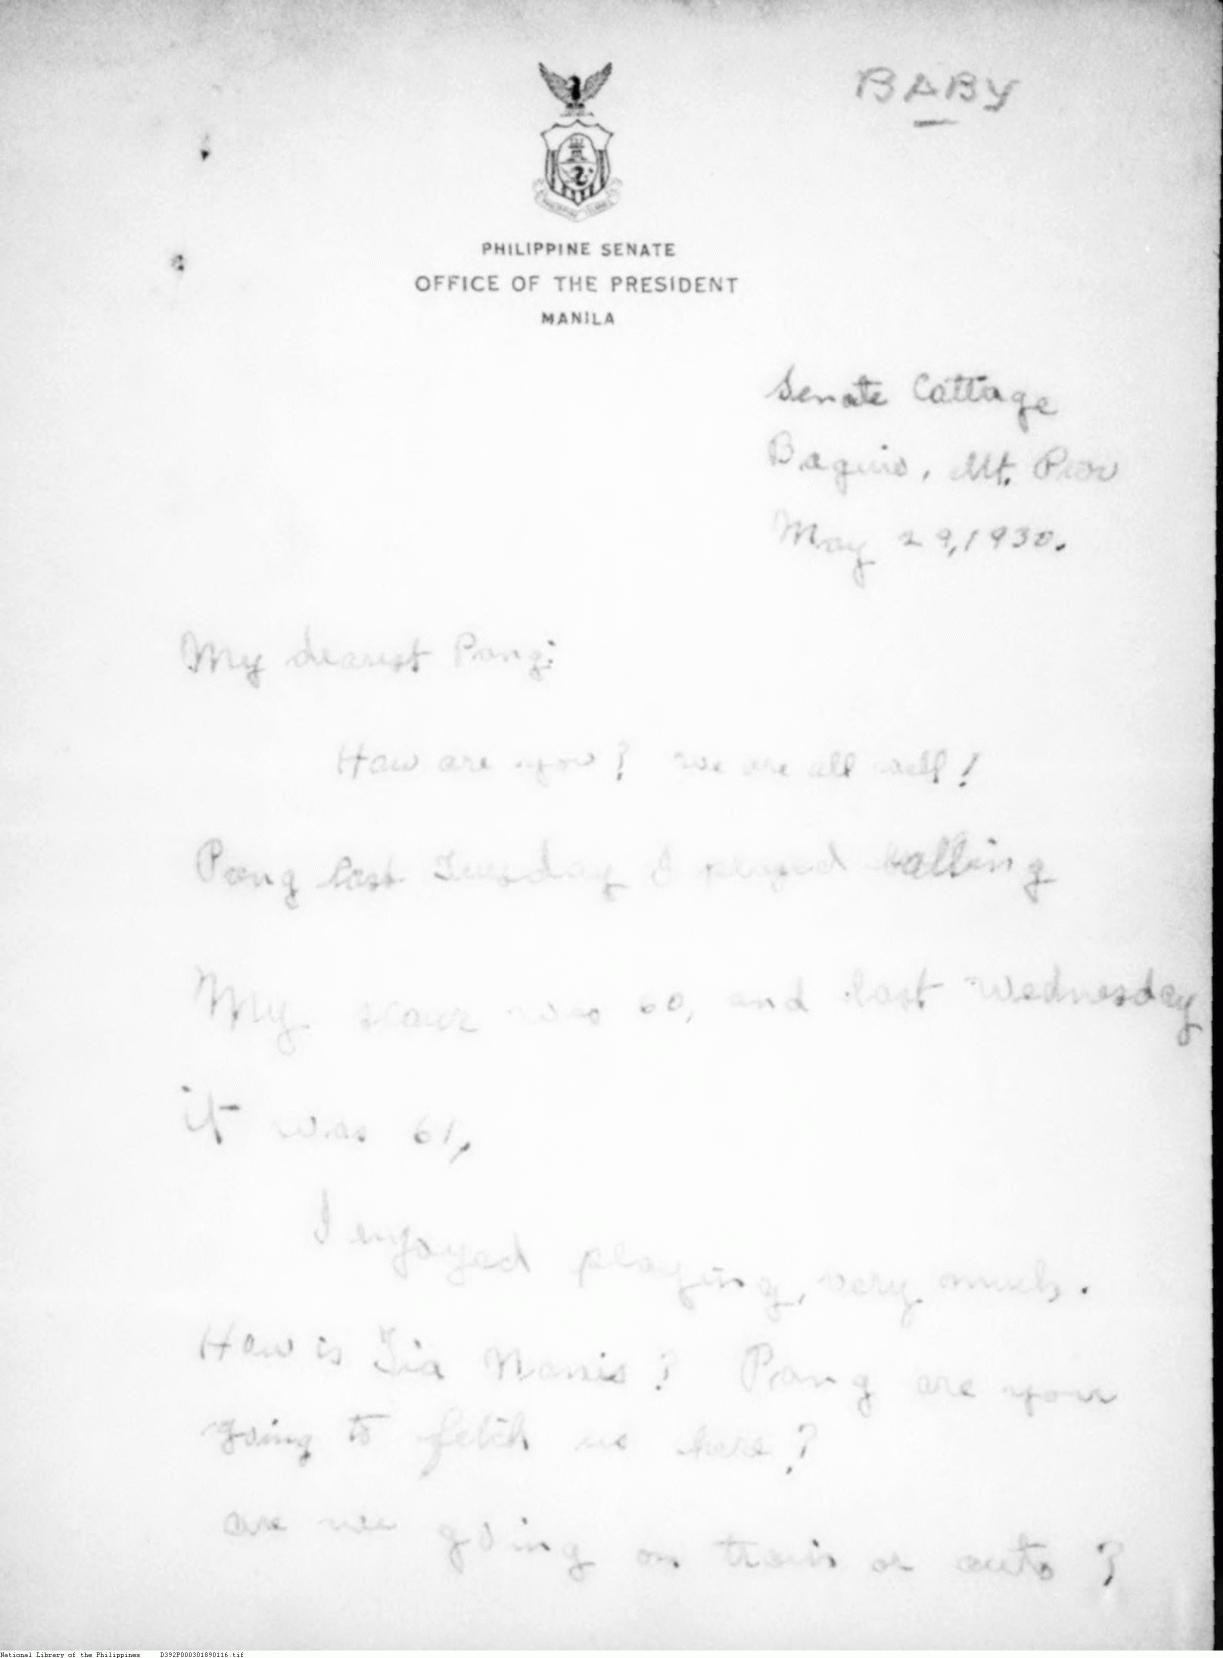 BABY
PHILIPPINE SENATE
OFFICE OF THE PRESIDENT
MANILA
Senate Cottage
Baguio, Mt. Prov
May 29, 1930.
My dearest Pang:
How are you? we are all well!
Pang last Tuesday I played balling
My scour was 60, and last wednesday
it was 61,
I enjoyed playing, very much.
How is Tia Nanis? Pang are your
going to fetch us here?
are we going on train or auto?
National Library of the Philippines D392P000301890116.tif